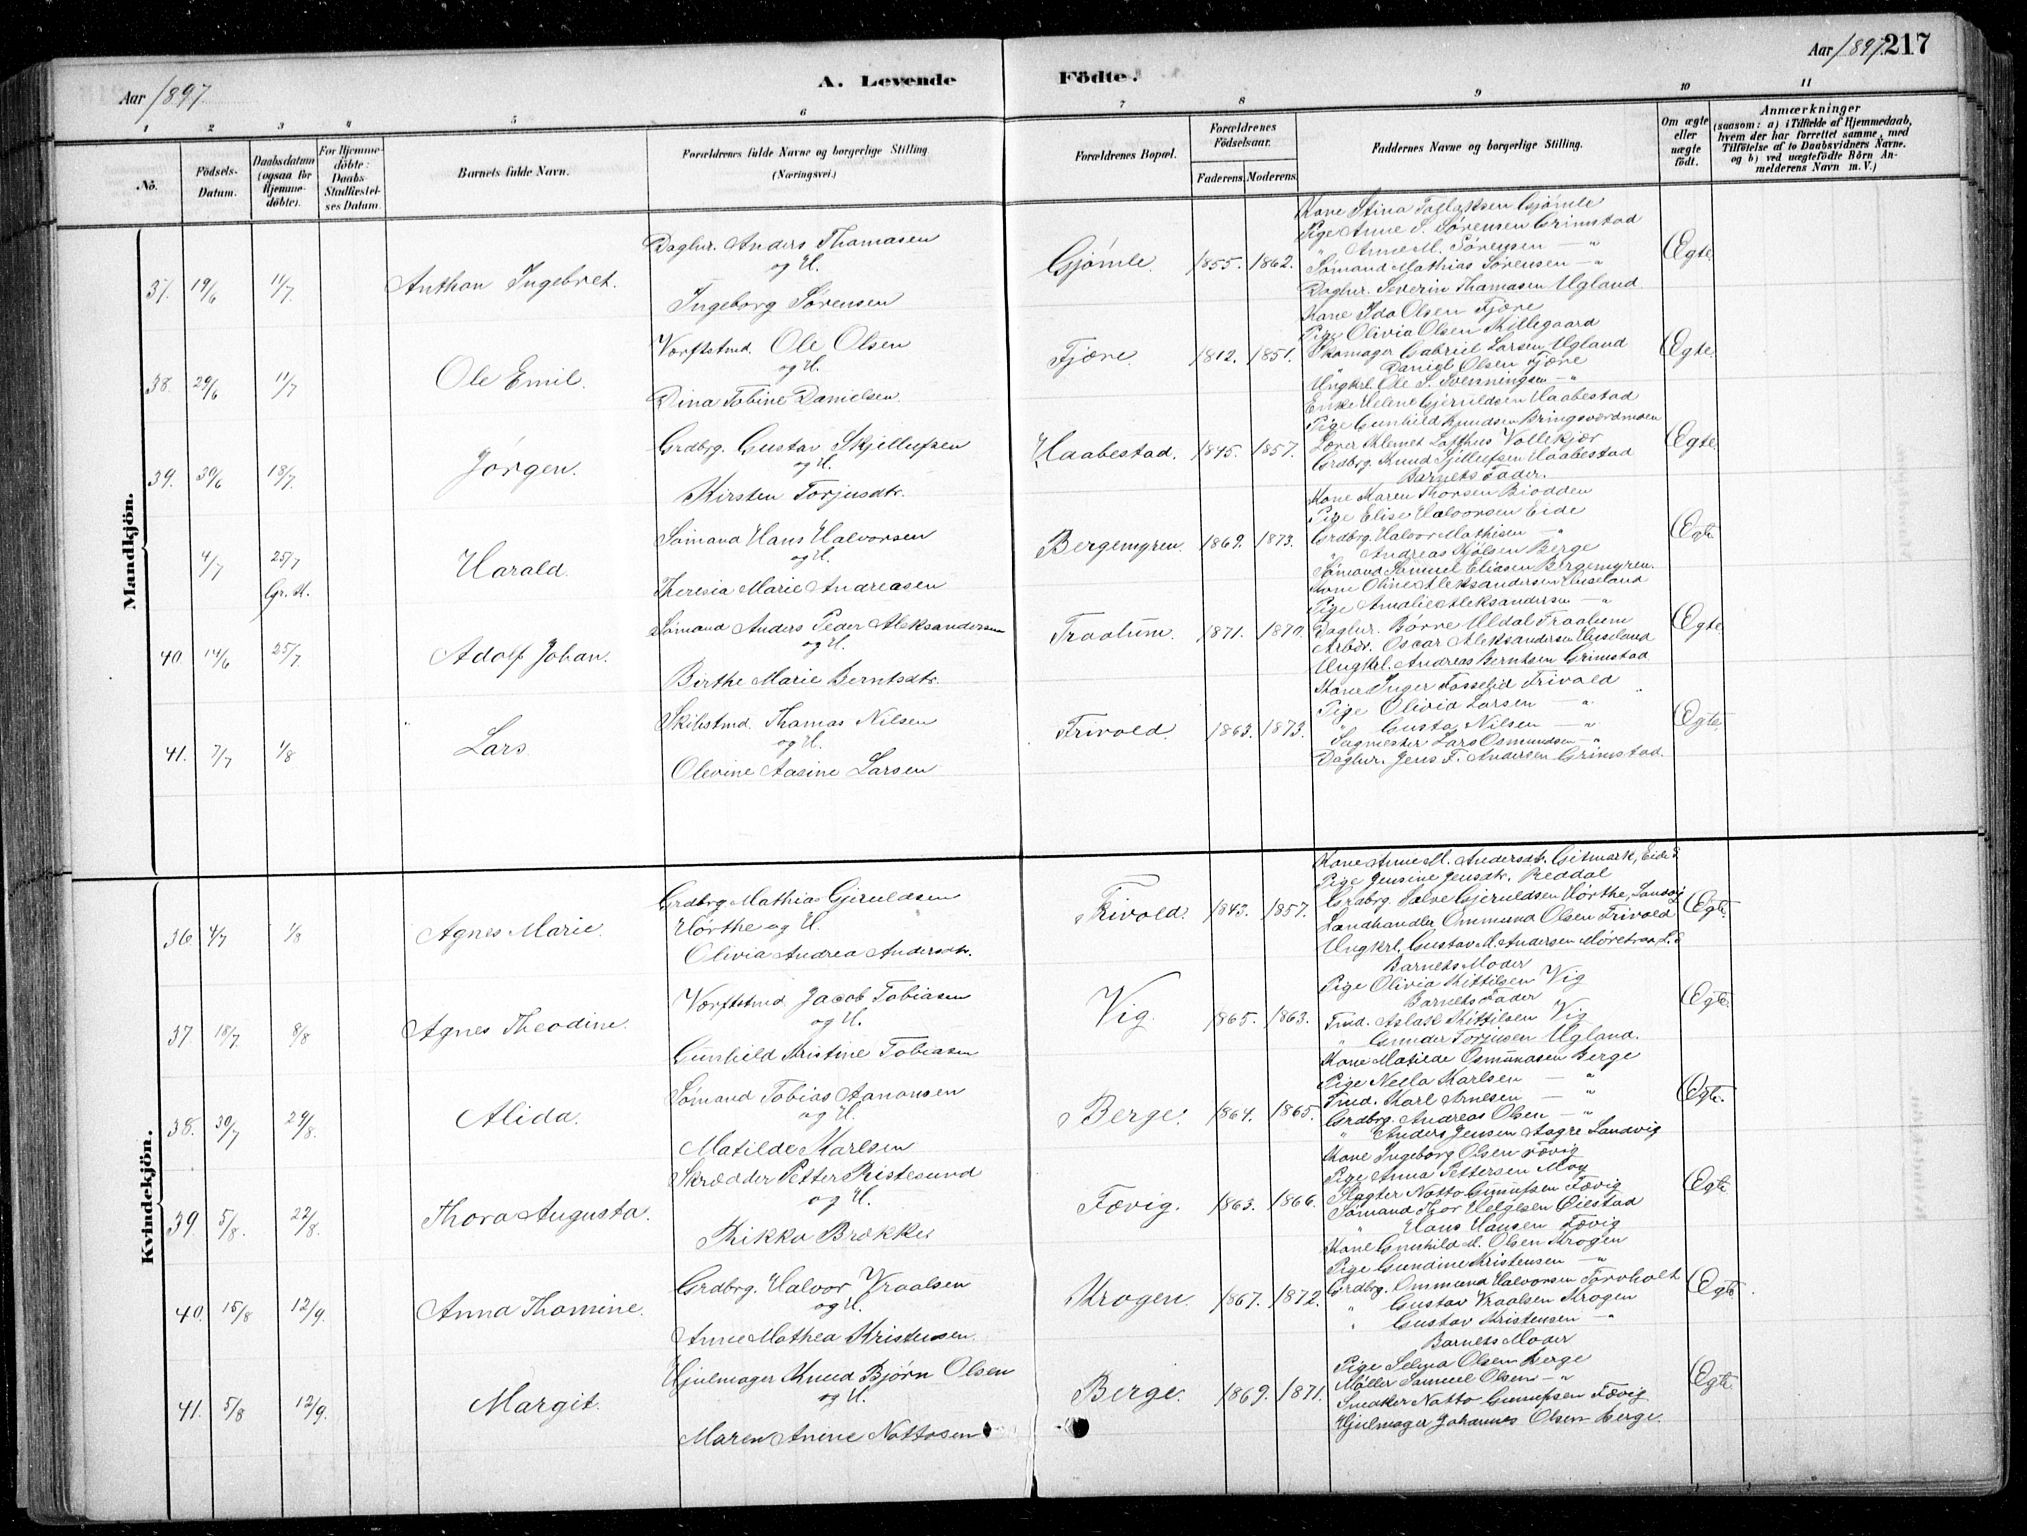 Aar 1897.
A. Levende
Födte.
Aar 1897. 217
1 2 3 4 5 6 7 8 9 10 11
No.
Födsels-Datum.
Daabsdatum (ogsaa for Hjemme-döbte).
For Hjemme-döbte: Daabs-Stadfæstel-ses Datum.
Barnets fulde Navn.
Forældrenes fulde Navne og borgerlige Stilling.
(Næringsvei.)
Forældrenes Bopæl.
Forældrenes Födselsaar.
Faderens. Moderens.
Faddernes Navne og borgerlige Stilling.
Om ægte eller uægte födt.
Anmærkninger
(saasom: a) i Tilfælde af Hjemmedaab, hvem der har forrettet samme, med Tilföielse af to Daabsvidners Navne. og b) ved uægtefödte Börn An-melderens Navn m. V.)
Mandkjön.
37. 19/6 11/7 Anthon Ingebret.
Daglnr. Anders Thomasen
og H.
Ingeborg Sørensen
Gjömle. 1855. 1862. Egte.
Kone Stina Gjömle
Pige Anne S. Sørensen Grimstad
" Anne M. Sørensen — "
Sømand Mathias Sørensen — "
Daglnr. Severin Thomasen Ugland
38. 29/6 11/7 Ole Emil.
Værftstmd. Ole Olsen
og H.
Dina Tobine Danielsen
Fjære. 1812. 1851. Egte.
Kone Ida Olsen Fjære
Pige Olivia Olsen Killegaard
Skomager Gabriel Larsen Ugland
Daniel Olsen Fjære
Ungkrl. Ole S. Svenningsen — "
39. 30/6 18/7 Jørgen.
Grdbrg. Gustav Skjellufsen
og H.
Kirsten Torjusdtr.
Haabestad. 1845. 1857. Egte.
Enke Helene Gjeruldsen Haabestad
Pige Gunhild Knudsen Bringsværdmoen
Lærer Klemet Lofthus Vollekjær
Grdbrg. Knud Sjellufsen Haabestad
Barnets Fader.
4/7 25/7 Gr. K. Harald.
Sømand Hans Halvorsen
og H.
Theresia Marie Andreasen
Bergemyren. 1869. 1873. Egte
Kone Karen Thorsen Biodden
Pige Elise Halvorsen Eide
Grdbrg. Halvor Mathisen — "
" Andreas Berge
Sømand Samuel Eliasen Bergemyren.
40. 14/6 25/7 Adolf Johan.
Sømand Anders Peder Aleksandersen
og H.
Birthe Marie Berntsdtr.
Traalum. 1871. 1870. Egte
Kone Oline Aleksandersen Huseland
Pige Amalie Aleksandersen — "
Daglnr. Børre Uldal Traalum
Arbdr. Oscar Aleksandersen Huseland
Ungkrl. Andreas Berntsen Grimstad
41. 7/7 1/8 Lars
Skibstmd. Thomas Nilsen
og H.
Olevine Aasine Larsen
Frivold. 1863. 1873. Egte.
Kone Inger Fosselid Frivold
Pige Olivia Larsen — "
" Gusta Nilsen — "
Sagmester Lars Osmundsen — "
Daglnr. Jens F. Andersen Grimstad.
Kvindekjön.
36 4/7 1/8 Agnes Marie.
Grdbrg Mathias Gjeruldsen
Hørthe og H.
Olivia Andrea Andersdtr.
Frivold. 1843. 1857. Egte.
Kone Anne M. Andersdtr. Gitmark, Eide S.
Pige Jensine Jensdtr. Reddal
Grdbrg. Salve Gjeruldsen Hørthe, Landvig
Landhandler Ommund Olsen Frivold
Ungkrl. Gustav M. Andersen Møretraa, L.
37 18/7 8/8 Agnes Theodine.
Værftstmd. Jacob Tobiasen
og H.
Gunhild Kristine Tobiasen
Vig. 1865. 1863. Egte.
Barnets Moder
Pige Olivia Kittilsen Vig
Barnets Fader
Tmd. Aslak Kittilsen Vig
" Gunder Torjusen Ugland.
38. 30/7 29/8. Alida.
Sømand Tobias Aanonsen
og H.
Matilde Karlsen
Berge. 1864. 1865. Egte.
Kone Matilde Osmundsen Berge
Pige Nella Karlsen — "
Tmd. Karl Arnesen — "
Grdbrg. Andreas Olsen — "
" Anders Jensen Aagre Landvig
39. 5/8. 22/8. Thora Augusta.
Skrædder Petter Ristesund
og H.
Rikka Brække
Fævig. 1863. 1866. Egte
Kone Ingeborg Olsen Fævig
Pige Anna Pettersen Moy
Slagter Notto Gunufsen Fævig
Sømand Thor Helgesen Øiestad
" Hans Hansen Fævig
40. 15/8 12/9. Anna Thomine.
Grdbrg. Halvor Vraalsen
og H.
Anne Mathea Kristensen.
Krogen. 1867. 1872. Egte.
Kone Gunhild M. Olsen Krogen
Pige Gundine Kristensen — "
Grdbrg. Ommund Halvorsen Torvholt
" Gustav Vraalsen Krogen
" Gustav Kristensen — "
41. 5/8 12/9. Margit.
Hjulmager Knud Bjørn Olsen
og H.
Maren Anine Nottosen
Berge. 1869. 1871. Egte.
Barnets Moder
Pige Selma Olsen Berge
Møller Samuel Olsen — "
Snedker Notto Gunufsen Fævig
Hjulmager Johannes Olsen Berge.